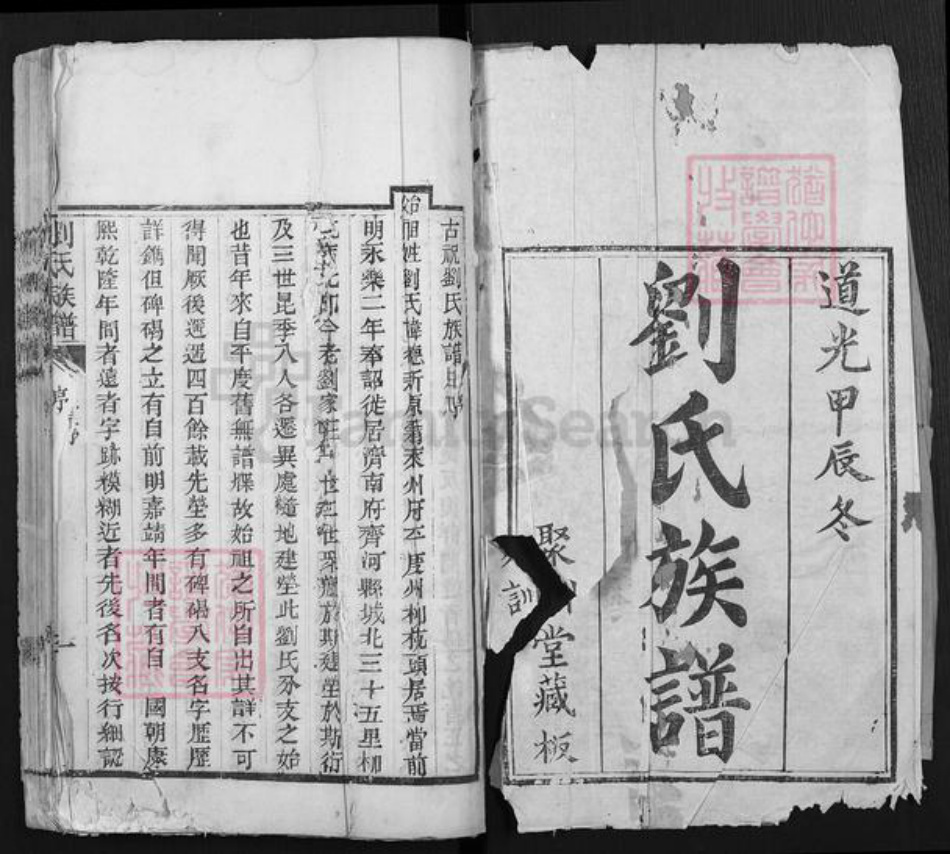 道光甲辰冬
劉氏族譜
聚 堂藏板
訓
古祝劉氏族譜
始祖姓劉氏諱 新原籍萊州府平度州柳杭頭居焉當前
明永樂二年奉詔徙居濟南府齊河縣城北三十五里柳
北 今老劉家 世 世 於斯建塋於斯衍
及三世昆季八人各遷異處隨地建塋此劉氏分支之始
也昔年來自平度舊無譜牒故始祖之所自出其詳不可
得聞厥後遞遞四百餘載先塋多有碑碣八支名字歷歷
詳鐫但碑碣之立有自前明嘉靖年間者有自 國朝康
熙乾隆年間者遠者字跡模糊近者先後名次按行細認
劉氏族譜
序
一
FamilySearch